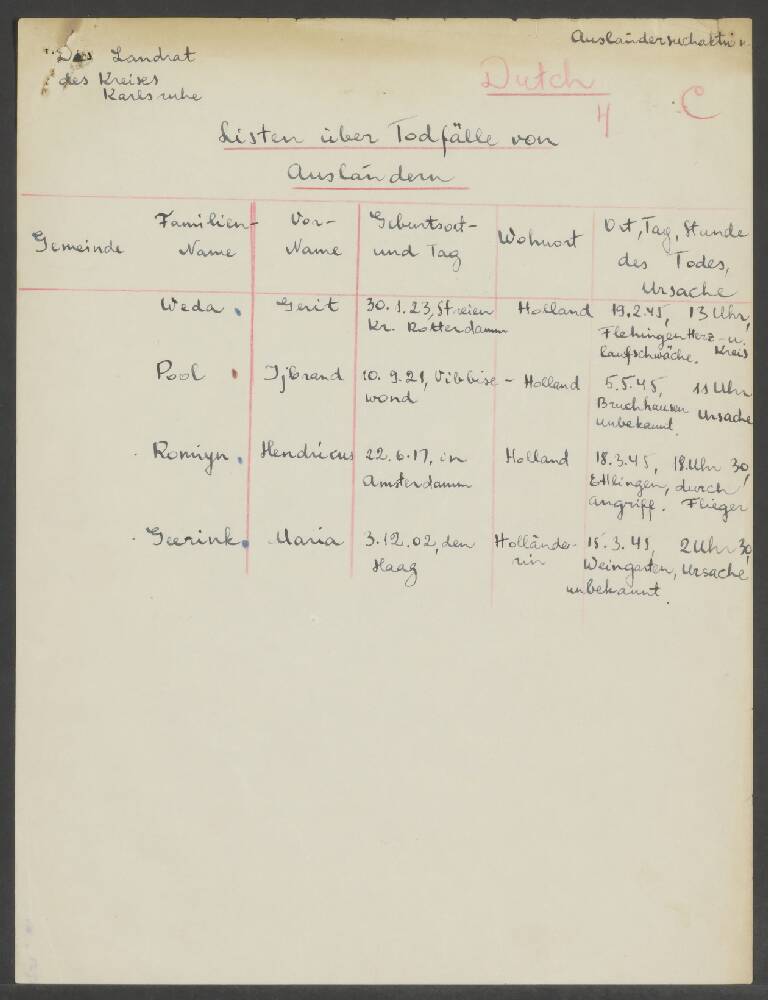 Ausländersuchaktion
Der Landrat
des Kreises
Karlsruhe
Dutch
4 C
Listen über Todfälle von
Ausländern
Gemeinde Familien- Name Vor- Name Geburtsort- und Tag Wohnort Ort, Tag, Stunde des Todes, Ursache
Weda Gerit 30.1.23, Streien Holland 19.2.45, 13 Uhr,
Kr. Rotterdamm Flehingen Herz- u.
Kreis
laufschwäche.
Pool Ijbrand 10.9.21, Vibbise- Holland 5.5.45, 11 Uhr
wond Bruchhausen Ursache
unbekannt.
Romijn Hendricus 22.6.17, in Holland 18.3.45, 18 Uhr 30,
Amsterdamm Ettlingen, durch
Flieger
angriff.
Geerink Maria 3.12.02, den Hollände- 15.3.45, 2 Uhr 30,
Haag rin Weingarten, Ursache
unbekannt.